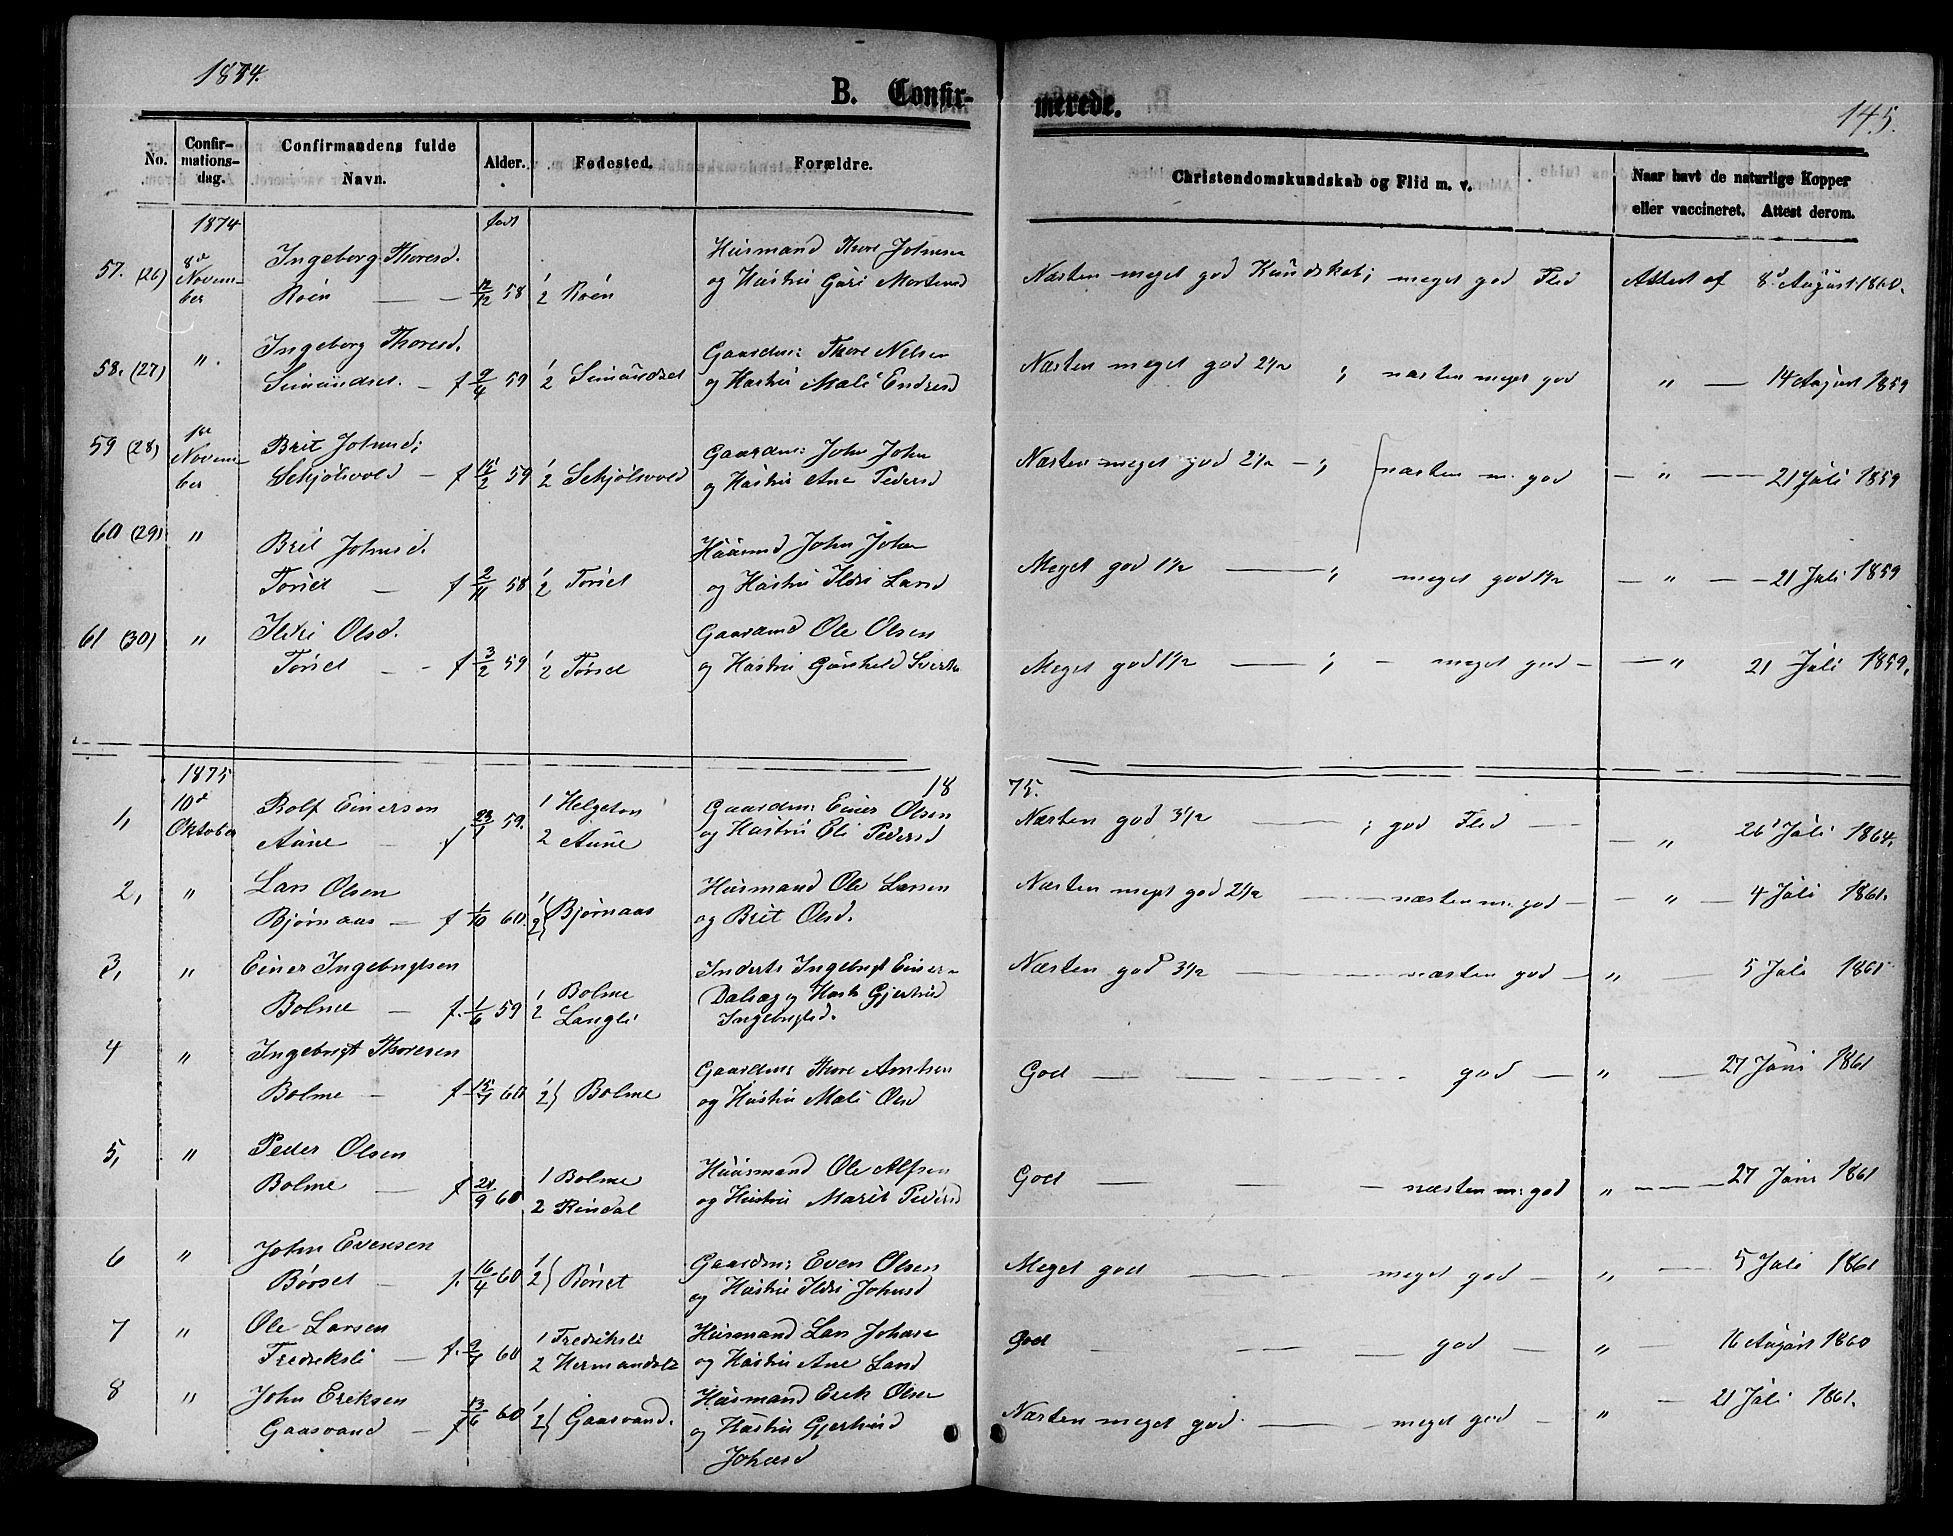 1874.
B. Confir-
merede.
145.
No.
Confir-
mations-
dag.
Confirmandens fulde
Navn.
Alder.
Fødested.
Forældre.
Christendomskundskab og Flid m. v.
Naar havt de naturlige Kopper
eller vaccineret. Attest derom.
1874
født
57. (26) 8d Novem- ber
Ingeborg Thoresd.
Roen 12/12 58
1/2 Roen
Husmand Thore Johnsen
og Hustru Guri Mortensd
Næsten meget god Kundskab; meget god Flid
Attest af 8d August 1860.
58. (27) "
Ingeborg Thoresd.
f 9/4 59
Gaardm: Thore Nelsen
og Hustru Mali Endresd
Næsten meget god 2½ ; næsten meget god
" 14 August 1859
59 (28) 1ste Novem- ber
Brit Johnsd:
Schjølsvold f 59
1/2 Schjølsvold
Gaardm: John John
og Hustru Ane Pedersd
Næsten meget god 2½ ; næsten m. god
" 21 Juli 1859
60 (29) "
Brit Johnsd.
Torset f 2/11 58
1/2 Torset
Husmd John John
og Hustru Ildri Larsd
Meget god 1½ ; meget god 1½
" 21 Juli 1859
61 (30) "
Ildri Olsd.
Torset f 3/2 59
1/2 Torset
Gaardmd Ole Olsen
og Hustru Gunhild
Meget god 1½ ; meget god
" 21 Juli 1859.
1875
18
75.
1, 10d Oktober
Rolf Einersen
Aune f 59.
1 Helgeton
2 Aune
Gaardm: Einer Olsen
og Hustru Eli Pedersd
Næsten god 3½ ; god Flid
" 26 Juli 1864.
2, "
Lars Olsen
Bjørnaas f. 1/10 60.
1/2} Bjørnaas
Husmand Ole Larsen
og Brit Olsd.
Næsten meget god 2½ næsten m. god
" 4 Juli 1861.
3, "
Einer Ingebrigtsen
Bolme f. 1/6 59
1 Bolme
2 Langli
Inderst Ingebrigt Einer-
Ingebrigtsd.
Næsten god 3½ næsten god
" 5 Juli 1861
4 "
Ingebrigt Thoresen
Bolme f 60
1/2} Bolme
Gaardm: Thore Arntsen
og Hustru Mali Olsd
God god
" 27 Juni 1861
5, "
Peder Olsen
Bolme f 21/9 60
1 Bolme
2 Rindal
Husmand Ole Alfsen
og Hustru Marit Pedersd
God næsten m: god
" 27 Juni 1861
6 "
John Evensen
Børset f. 16/4 60
1/2} Børset
Gaardm: Even Olsen
og Hustru Ildri Johnsd
Meget god meget god
" 5 Juli 1861
7 "
Ole Larsen
Fredriksli f. 60
1 Fredriksli
2
Husmand Lars Johnse
og Hustru Ane Larsd
God god
" 16 August 1860
8 "
John Eriksen
Gaasvand f 13/6 60
1/2} Gaasvand.
Husmand Erik Olsen
og Hustru Gjertrud
Johnsd
Næsten meget god meget god
" 21 Juli 1861.